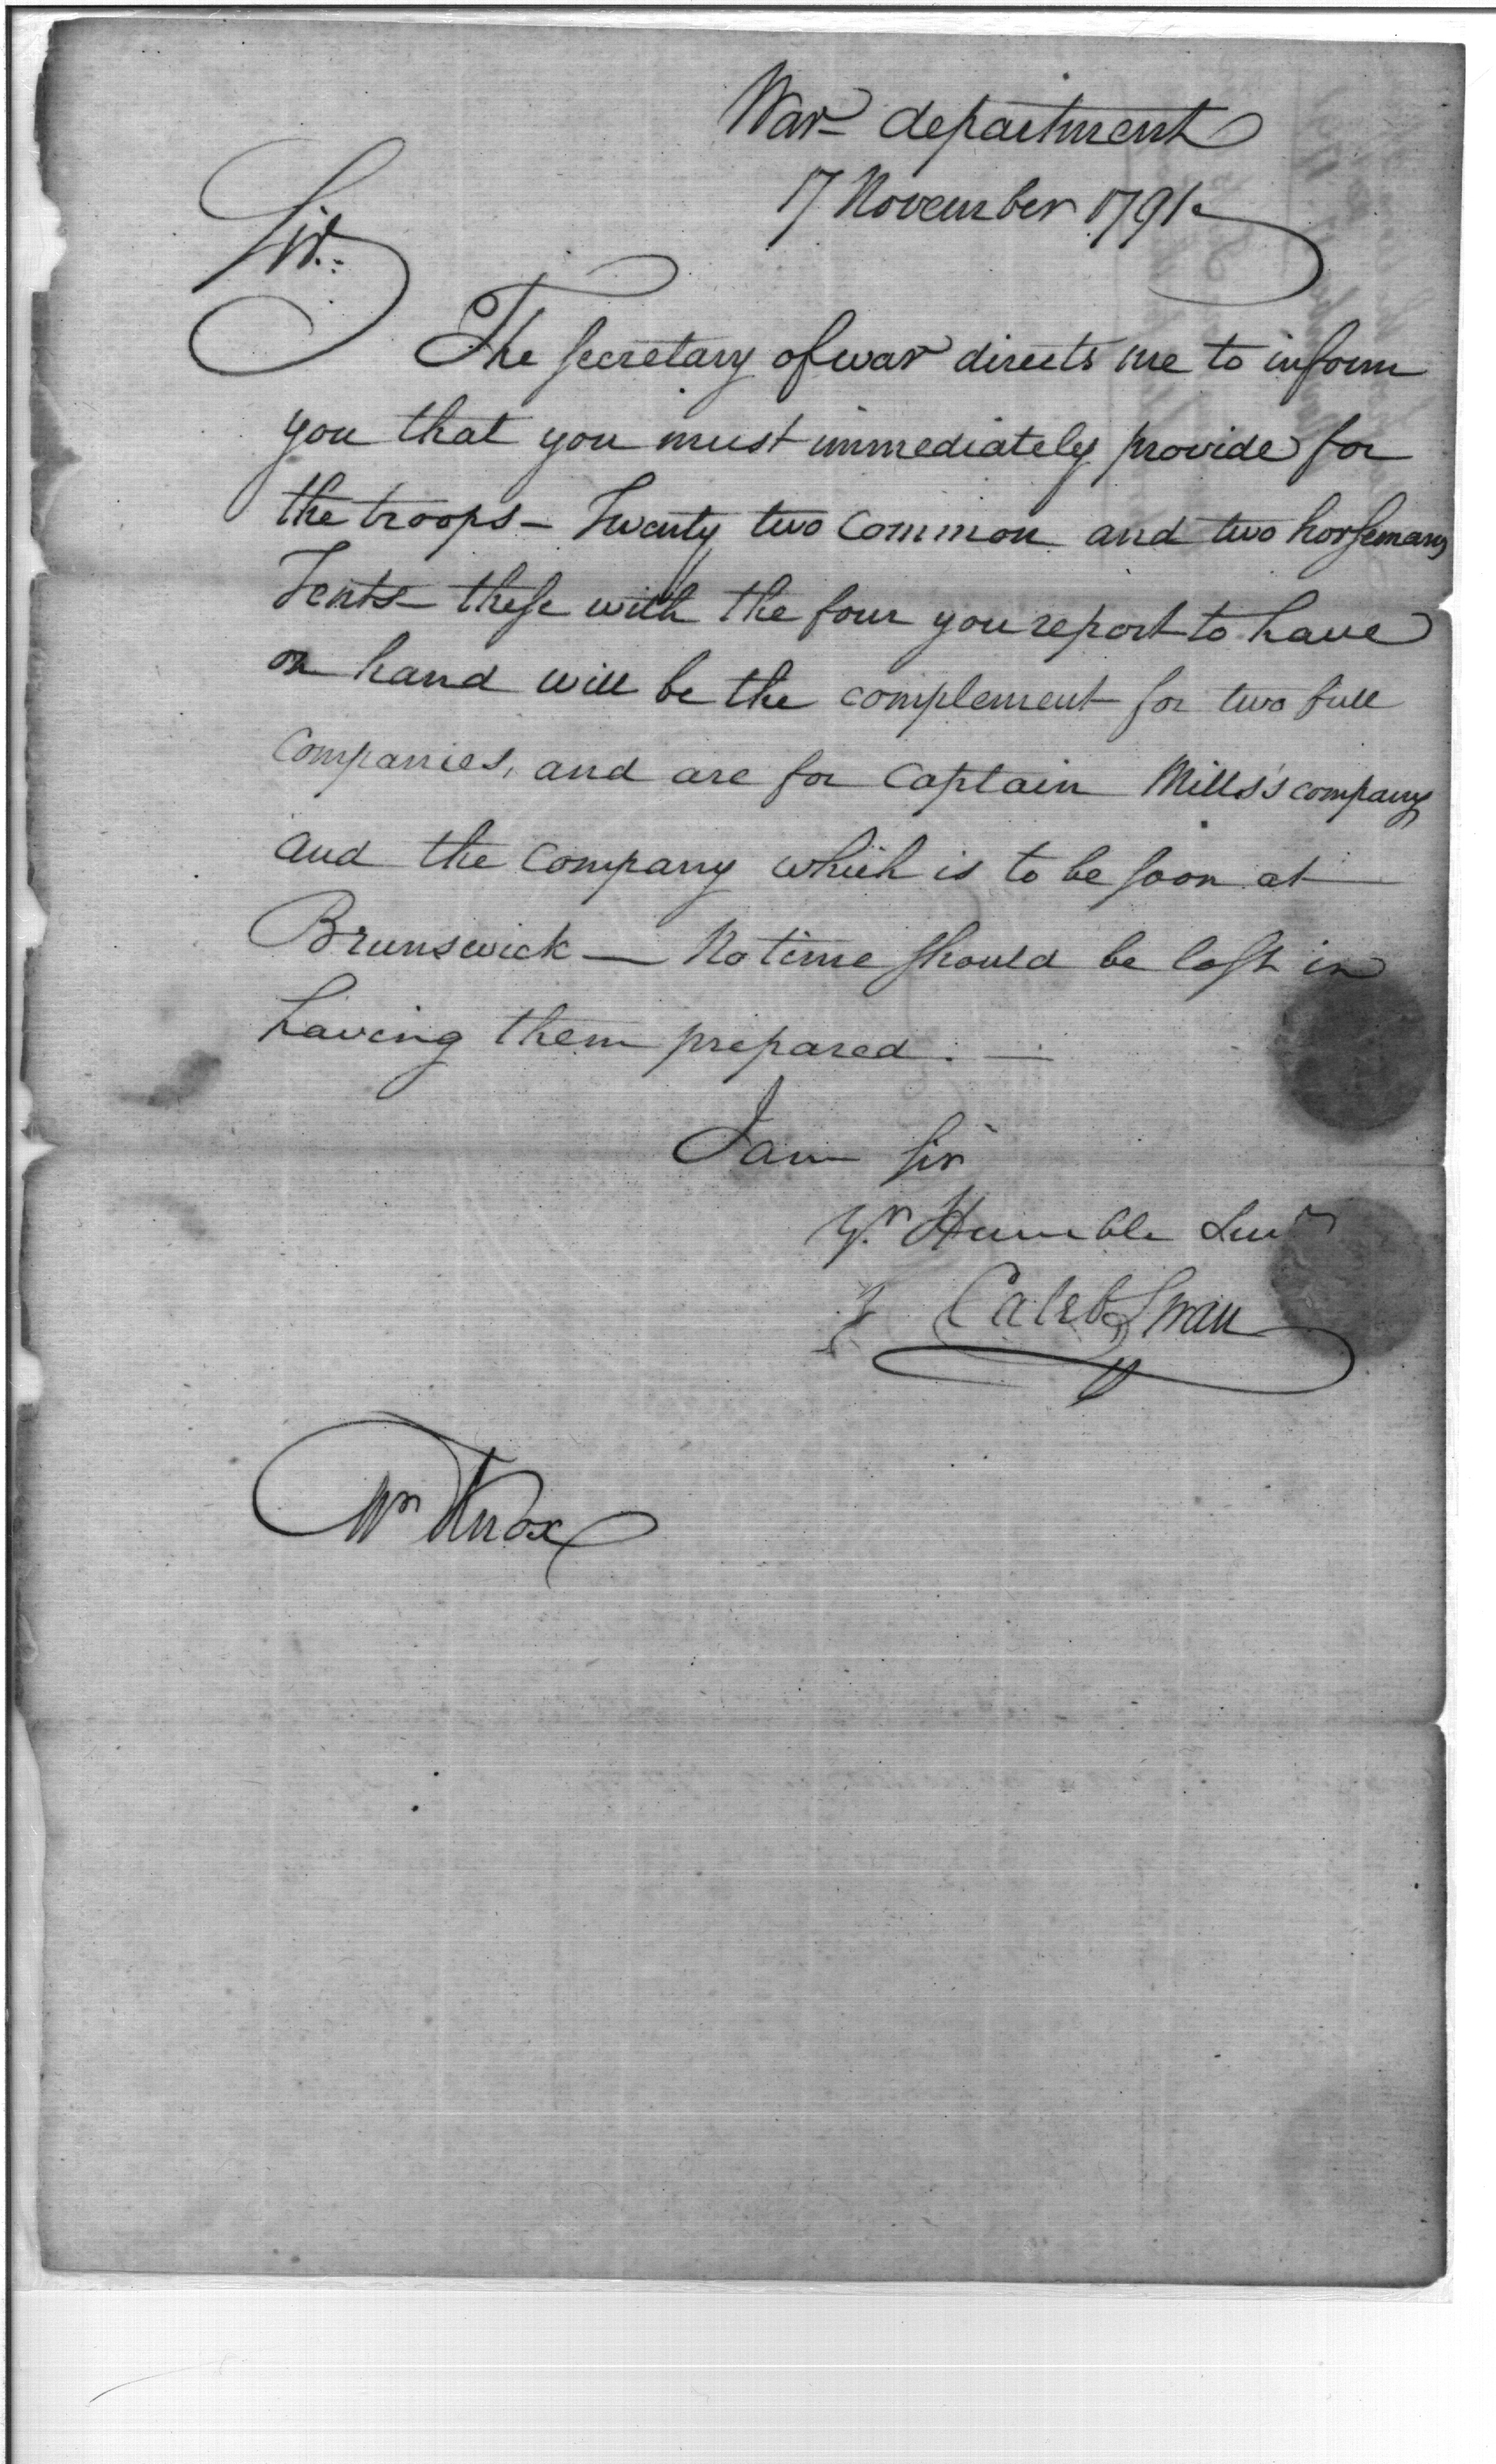 War department
17 November 1791.
Sir.
The secretary of war directs me to inform
you that you must immediately provide for
the troops - Twenty two common and two horsemans
Tents - these with the four you report to have
on hand will be the complement for two full
companies, and are for Captain Mills's company
and the company which is to be soon at
Brunswick — No time should be lost in
having them prepared. —
I am Sir
Yr. Humble Servt
Caleb Swan
Wm Knox